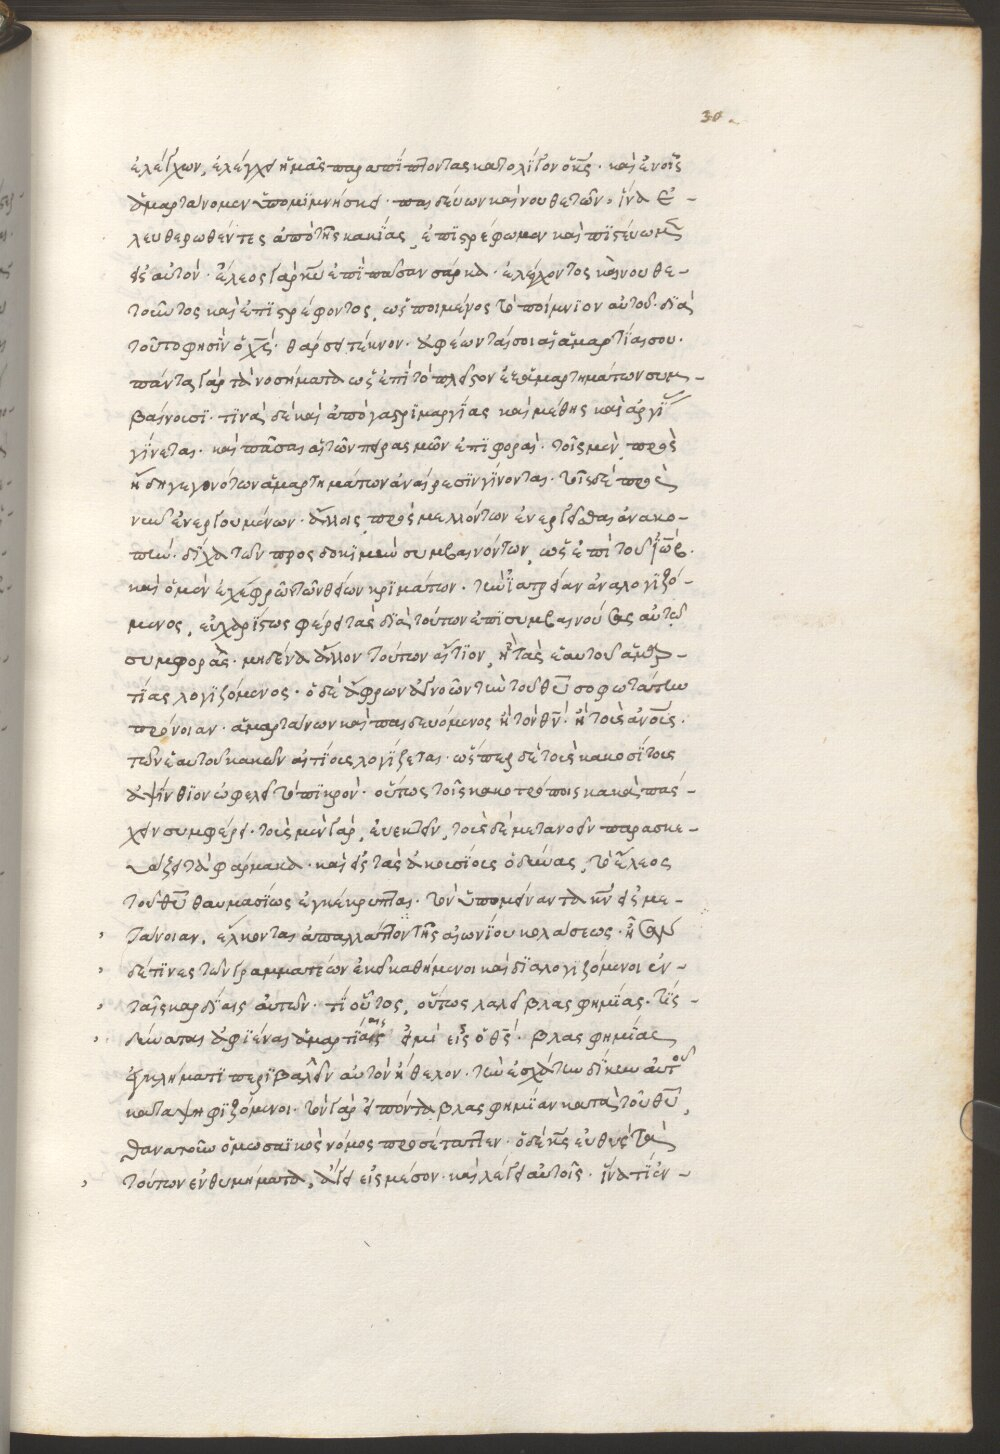 30
ἐλέγχων, ἐλέγχει ἡμᾶς παραπίπτοντας κατολίγον ὁ κς̄· καὶ ἐν οἷς
ἁμαρτάνομεν ὑπομιμνήσκει· παιδεύων καὶ νουθετῶν. ἵνα ἐ-
λευθερωθέντες ἀπὸ τῆς κακίας, ἐπιστρέφωμεν καὶ πιστεύωμεν
εἰς αὐτόν· ἔλεος γὰρ κῡ ἐπὶ πᾶσαν σάρκα· ἐλέγχοντος καὶ νουθε-
τοῦντος καὶ ἐπιστρέφοντος, ὡς ποιμένος τὸ ποίμνιον αὐτοῦ· διὰ
τοῦτο φησὶν ὁ χς̄· θάρσει τέκνον· ἀφέωνταί σοι αἱ ἁμαρτίαι σου·
πάντα γὰρ τὰ νοσήματα ὡς ἐπὶ τὸ πλεῖστον ἐξ ἁμαρτημάτων συμ-
βαίνουσι· τινὰ δὲ καὶ ἀπὸ γαστριμαργίας καὶ μέθης καὶ ἀργίας
γίνεται· καὶ πᾶσαι αἱ τῶν πειρασμῶν ἐπιφοραὶ· τοῖς μὲν, πρὸς
ἤδη γεγονότων ἁμαρτημάτων ἀναίρεσιν γίνονται· τοῖς δὲ πρὸς
νῦν ἐνεργουμένων· ἄλλοις, πρὸς μελλόντων ἐνεργεῖσθαι ἀνακο-
πήν· δίχα τῶν πρὸς δοκιμὴν συμβαινόντων, ὡς ἐπὶ τοῦ ἰώβ·
καὶ ὁ μὲν ἐχέφρων τῶν θείων κριμάτων· τὴν ἰατρείαν ἀναλογιζό-
μενος, εὐχαρίστως φέρει τὰς διὰ τούτων ἐπισυμβαινούσας αὐτῷ
συμφοράς· μηδένα ἄλλον τούτων αἴτιον, ἢ τὰς ἑαυτοῦ ἁμαρ-
τίας λογιζόμενος· ὁ δὲ ἄφρων ἀγνοῶν τὴν τοῦ θῡ σοφωτάτην
πρόνοιαν· ἁμαρτάνων καὶ παιδευόμενος ἢ τὸν θν̄· ἢ τοὺς ἀνο̄υς·
τῶν ἑαυτοῦ κακῶν αἰτίους λογίζεται· ὥσπερ δὲ τοὺς κακοσίτους
ἀψίνθιον ὠφελεῖ τὸ πικρόν· οὕτως τοῖς κακοτρόποις κακὰ πάσ-
χειν συμφέρει· τοὺς μὲν γὰρ, εὐεκτεῖν, τοὺς δὲ μετανοεῖν παρασκε-
υάζει τὰ φάρμακα· καὶ εἰς τὰς ἀκουσίους ὀδύνας, τὸ ἔλεος
τοῦ θῡ θαυμασίως ἐγκέκρυπται· τὸν ὑπομείναντα κν̄ εἰς με-
τάνοιαν, ἕλκοντα ἀπαλλάττον τῆς αἰωνίου κολάσεως· ἦσαν
δέ τινες τῶν γραμματέων ἐκεῖ καθήμενοι καὶ διαλογιζόμενοι ἐν-
ταῖς καρδίαις αὐτῶν· τί οὗτος, οὕτως λαλεῖ βλασφημίας· τίς
δύναται ἀφιέναι ἁμαρτίας εἰ μὴ εἷς ὁ θς̄· βλασφημίας
ἐγκλήματι περιβαλεῖν αὐτὸν ἤθελον· τὴν ἐσχάτην δίκην αὐτοῦ
καταψηφιζόμενοι· τὸν γὰρ εἰπόντα βλασφημίαν κατὰ τοῦ θῡ,
θανατοῦν ὁ μωσαϊκὸς νόμος προσέταττεν· ὁ δὲ κς̄ εὐθὺς τὰ
τούτων ἐνθυμήματα, ἄγει εἰς μέσον· καὶ λέγει αὐτοῖς· ἵνα τί ἐν-